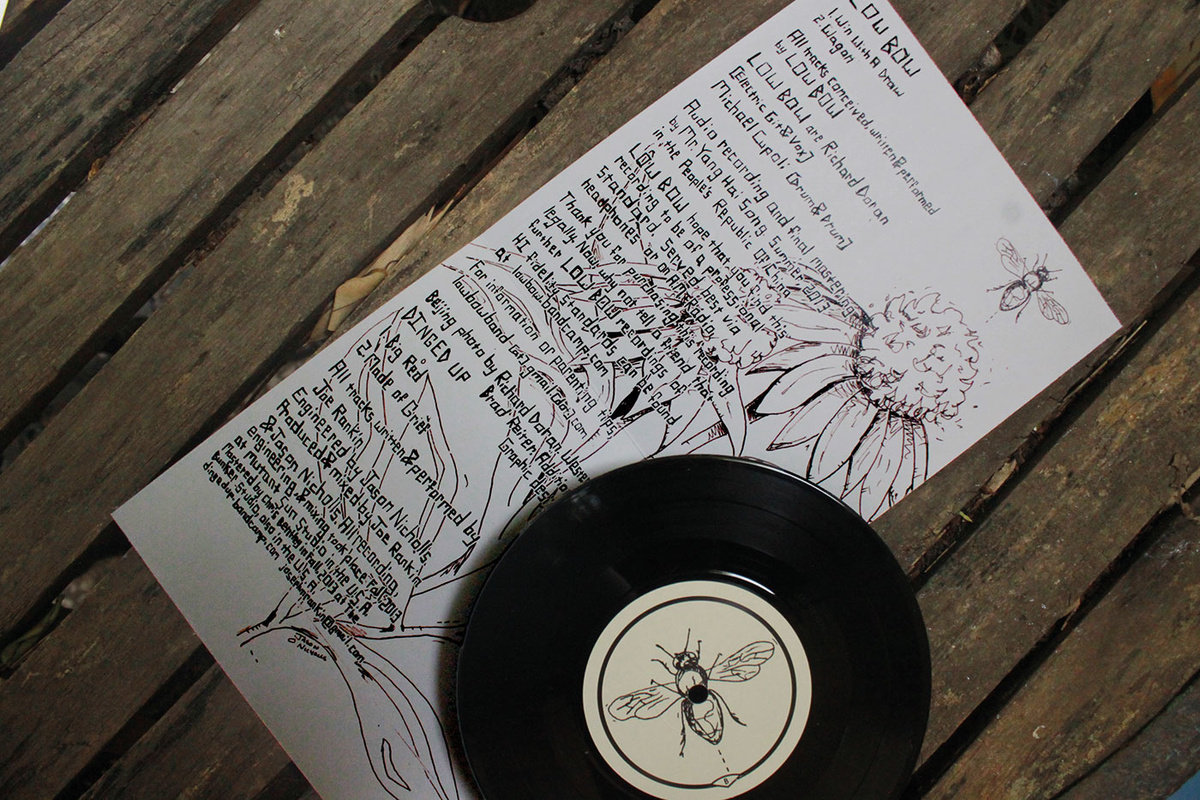 LOW BOW
1. Win With A Draw
2. Wagon
All tracks conceived, written & performed
by LOW BOW
LOW BOW are Richard Doran
[Electric Git & Vox]
Michael Cupoli [Drum & Drum]
Audio recording and final mastering
by Mr. Yang Hai Song Summer 2013
in the Peoples Republic Of China
LOW BOW hope that you find this
recording to be of a pressional
standard. Served best via
headphones or on AM Radio.
Thank you for purchasing this recording
legally. Now why not tell a friend that
further LOW BOW recordings of
HI fidelity standards can be found
at lowbow.bandcamp.com
For information or parenting tips,
lowbowband [at] gmail [dot] com
Beijing photo by Richard Doran, West
Brad Reiren
Graphic
DINGED UP
1. Big Red
2. Made of Grief
All tracks written & performed by
Joe Rankin & Jason Nicholls
Engineered by Jason Nicholls
Produced & mixed by Joe Rankin
& Jason Nicholls All recording,
engineering & mixing took place Fall 2013
at Mutant Sun Studio in the U.C.A.
Mastered by Chris Bentley in Fall 2013 at The
Bunker Studio, also in the U.S.A.
dingedup.bandcamp.com
@gmail.com
JASON
NICHOLLS
B